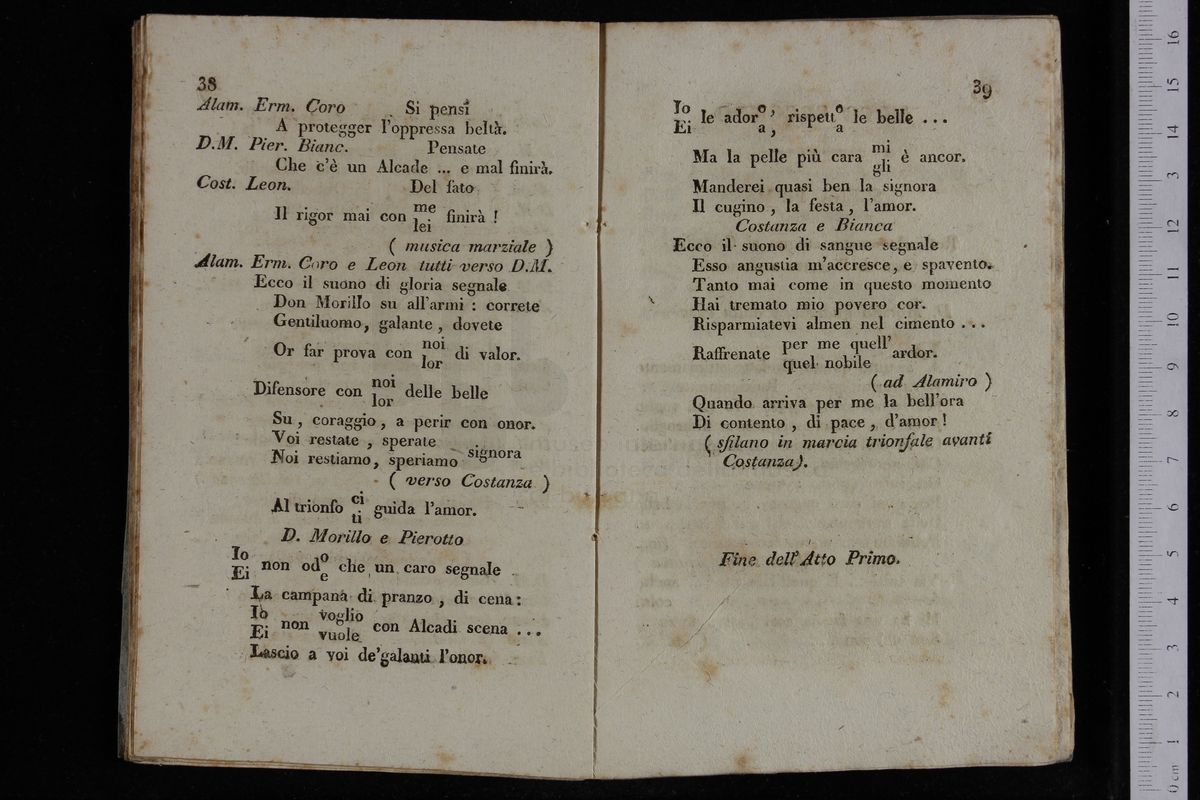 38
Alam. Erm. Coro Si pensi
A protegger l'oppressa beltà.
D.M. Pier. Bianc. Pensate
Che c'è un Alcade ... e mal finirà.
Cost. Leon. Del fato
Il rigor mai con me finirà !
lei
( musica marziale )
Alam. Erm. Coro e Leon tutti verso D.M.
Ecco il suono di gloria segnale
Don Morillo su all'armi : correte
Gentiluomo, galante , dovete
Or far prova con noi di valor.
lor
Difensore con noi delle belle
lor
Su , coraggio , a perir con onor.
Voi restate , sperate
Noi restiamo, speriamo signora
( verso Costanza )
Al trionfo ci guida l'amor.
ti
D. Morillo e Pierotto
Io
Ei non odo che un caro segnale
e
La campana di pranzo , di cena :
Io voglio
Ei non vuole con Alcadi scena ...
Lascio a voi de'galanti l'onor.
39
Io le adoro , rispetto le belle ...
Ei a , a
Ma la pelle più cara mi è ancor.
gli
Manderei quasi ben la signora
Il cugino , la festa , l'amor.
Costanza e Bianca
Ecco il suono di sangue segnale
Esso angustia m'accresce, e spavento.
Tanto mai come in questo momento
Hai tremato mio povero cor.
Risparmiatevi almen nel cimento ...
Raffrenate per me quell' ardor.
quel nobile
( ad Alamiro )
Quando arriva per me la bell'ora
Di contento , di pace , d'amor !
( sfilano in marcia trionfale avanti
Costanza ).
Fine dell'Atto Primo.
16
15
14
13
12
11
10
9
8
7
6
5
4
3
2
1
0 cm